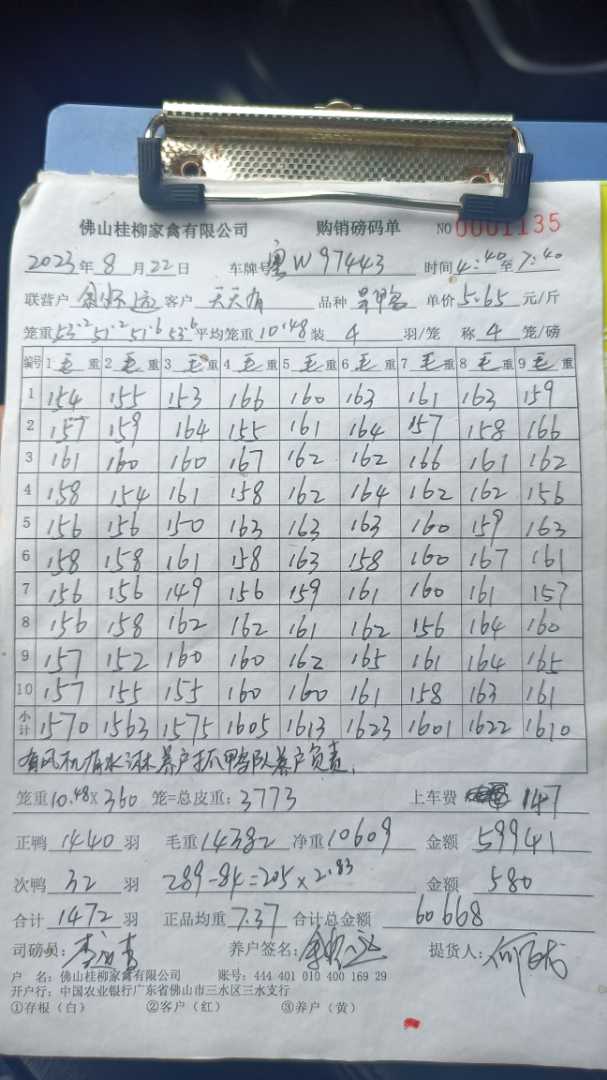 佛山桂柳家禽有限公司 购销磅码单 NO 0001135
2023年8月22日 车牌号 粤W97443 时间4:40至7:40
联营户 客户 天天有 品种 单价5.65元/斤
笼重53.2 51.2 51.6 53.6 平均笼重10.48装 4 羽/笼 称 4 笼/磅
编号 1毛重 2毛重 3毛重 4毛重 5毛重 6毛重 7毛重 8毛重 9毛重
1 154 155 153 166 160 163 161 163 159
2 157 159 164 155 161 164 157 158 166
3 161 160 160 167 162 162 166 161 162
4 158 154 161 158 162 164 162 162 156
5 156 156 150 163 163 163 160 159 163
6 158 158 161 158 163 158 160 167 161
7 156 156 149 156 159 161 160 161 157
8 156 158 162 162 161 162 156 164 160
9 157 152 160 160 162 165 161 164 165
10 157 155 155 160 160 161 158 163 161
小计 1570 1563 1575 1605 1613 1623 1601 1622 1610
有风机有水淋养户抓鸭队养户负责,
笼重10.48×360笼=总皮重:3773 上车费 147
正鸭1440羽 毛重14382 净重10609 金额59941
次鸭32羽 289-84=205×2.83 金额580
合计1472羽 正品均重7.37 合计总金额60668
司磅员: 养户签名: 提货人:
户 名:佛山桂柳家禽有限公司 账号:444 401 010 400 169 29
开户行:中国农业银行广东省佛山市三水区三水支行
①存根(白) ②客户(红) ③养户(黄)